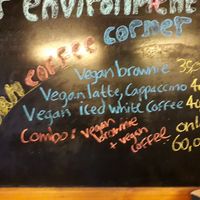 environment
corner
COFFEE
Vegan brownie 35,
Vegan latte, Cappaccino 4
Vegan iced white Coffee 4
Combo: vegan
brownie
+ vegan
COFFEE
onl
60,0